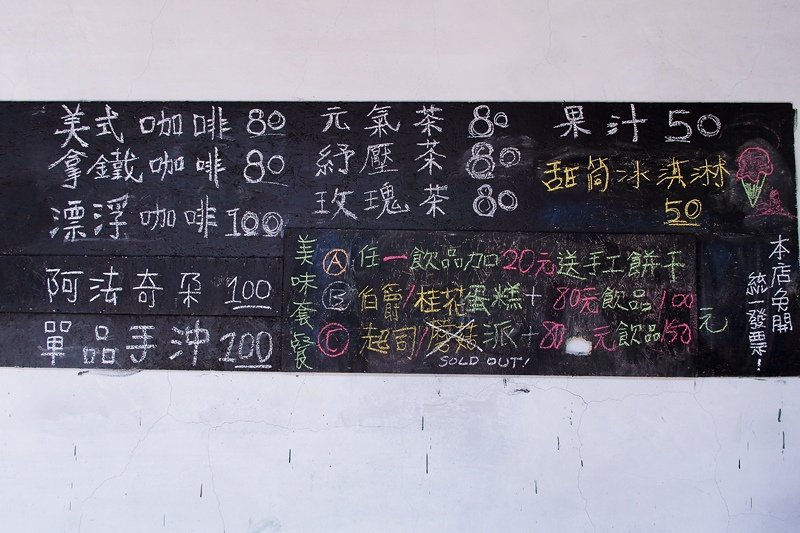 美式咖啡 80
拿鐵咖啡 80
漂浮咖啡 100
阿法奇朶 100
單品手沖 200
元氣茶 80
紓壓茶 80
玫瑰茶 80
果汁 50
甜筒冰淇淋
50
美味套餐
Ⓐ 任一飲品加20元送手工餅干
Ⓑ 伯爵/桂花蛋糕+80元飲品100
Ⓒ 起司/派+80元飲品150
元
SOLD OUT!
本店免開
統一發票!